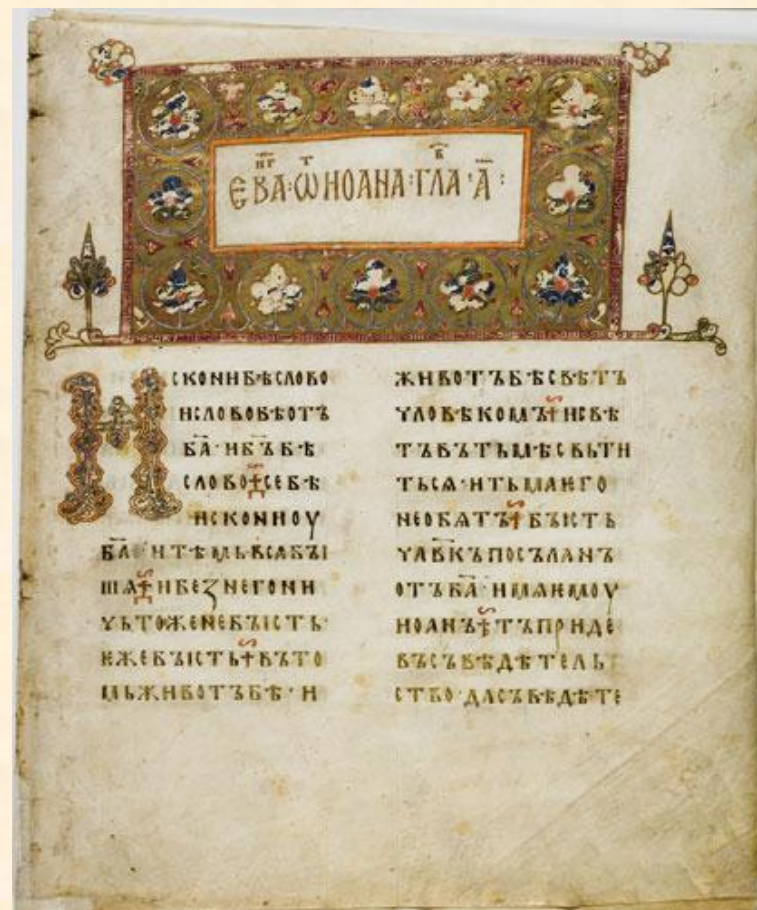 ЕВА·ѠИОАНА·ГЛА·А҃:
ИСКОНИБѢСЛОВО
ИСЛОВОБѢОТЪ
БА҃·ИБЪ҃БѢ
СЛОВО·СЕБѢ
ИСКОНИОУ
БА҃·ИТѢМЬВСѦБЫ
ШѦ·ИБЕЗНЕГОНИ
ЧЬТОЖЕНЕБЪІСТЬ·
ЕЖЕБЪІСТЬ·ВЪТО
МЬЖИВОТЪБѢ·И
ЖИВОТЪБѢСВѢТЪ
ЧЛОВѢКОМЪ·ИСВѢ
ТЪВЪТЬМѢСВЬТИ
ТЬСѦ·ИТЬМАЕГО
НЕОБѦТЪ·БЪІСТЬ
ЧЛВ҃КЪПОСЪЛАНЪ
ОТЪБА҃·ИМѦЕМОУ
ИОАНЪ·ТЪПРИДЕ
ВЪСЪВѢДѢТЕЛЬ
СТВО·ДАСЪВѢДѢТЕ